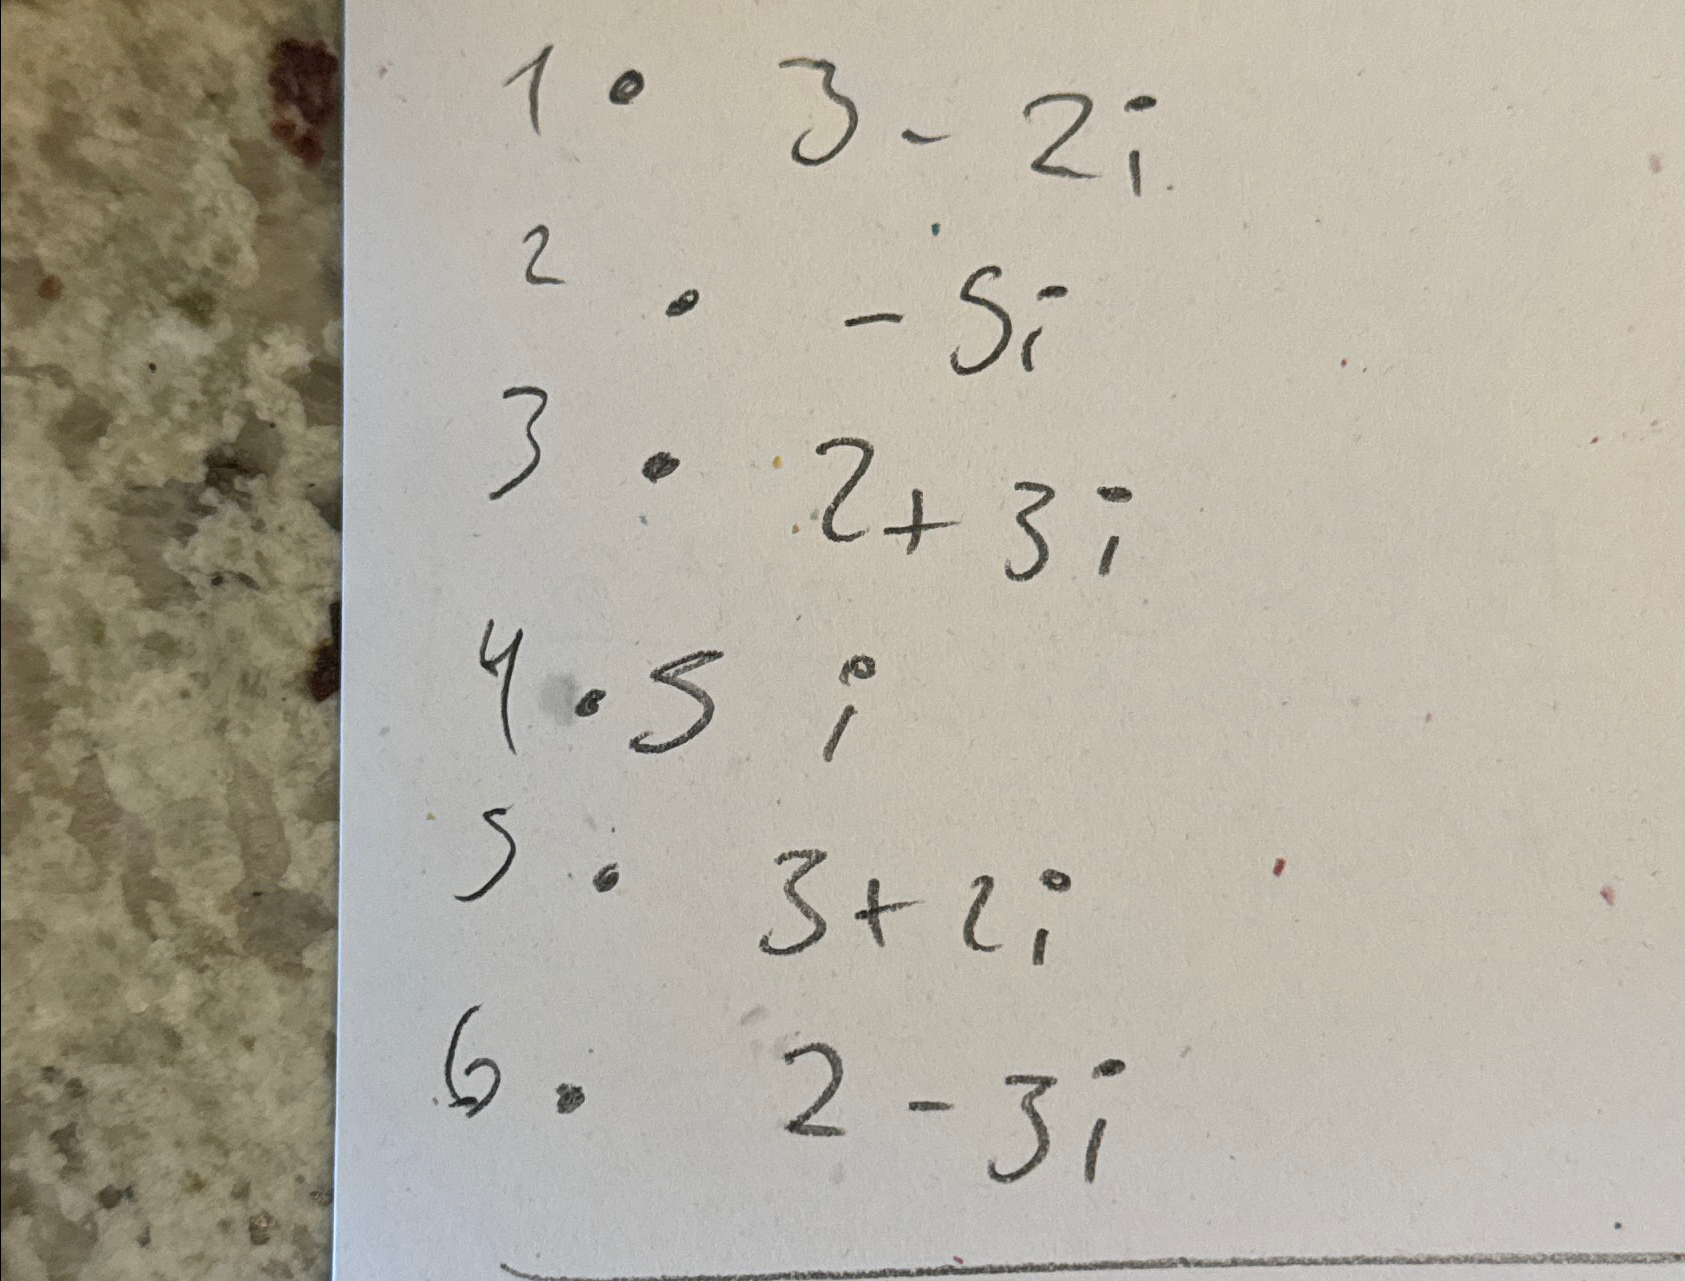 1. 3 - 2i
2. - 5i
3. 2 + 3i
4. 5 i
5. 3 + 2i
6. 2 - 3i